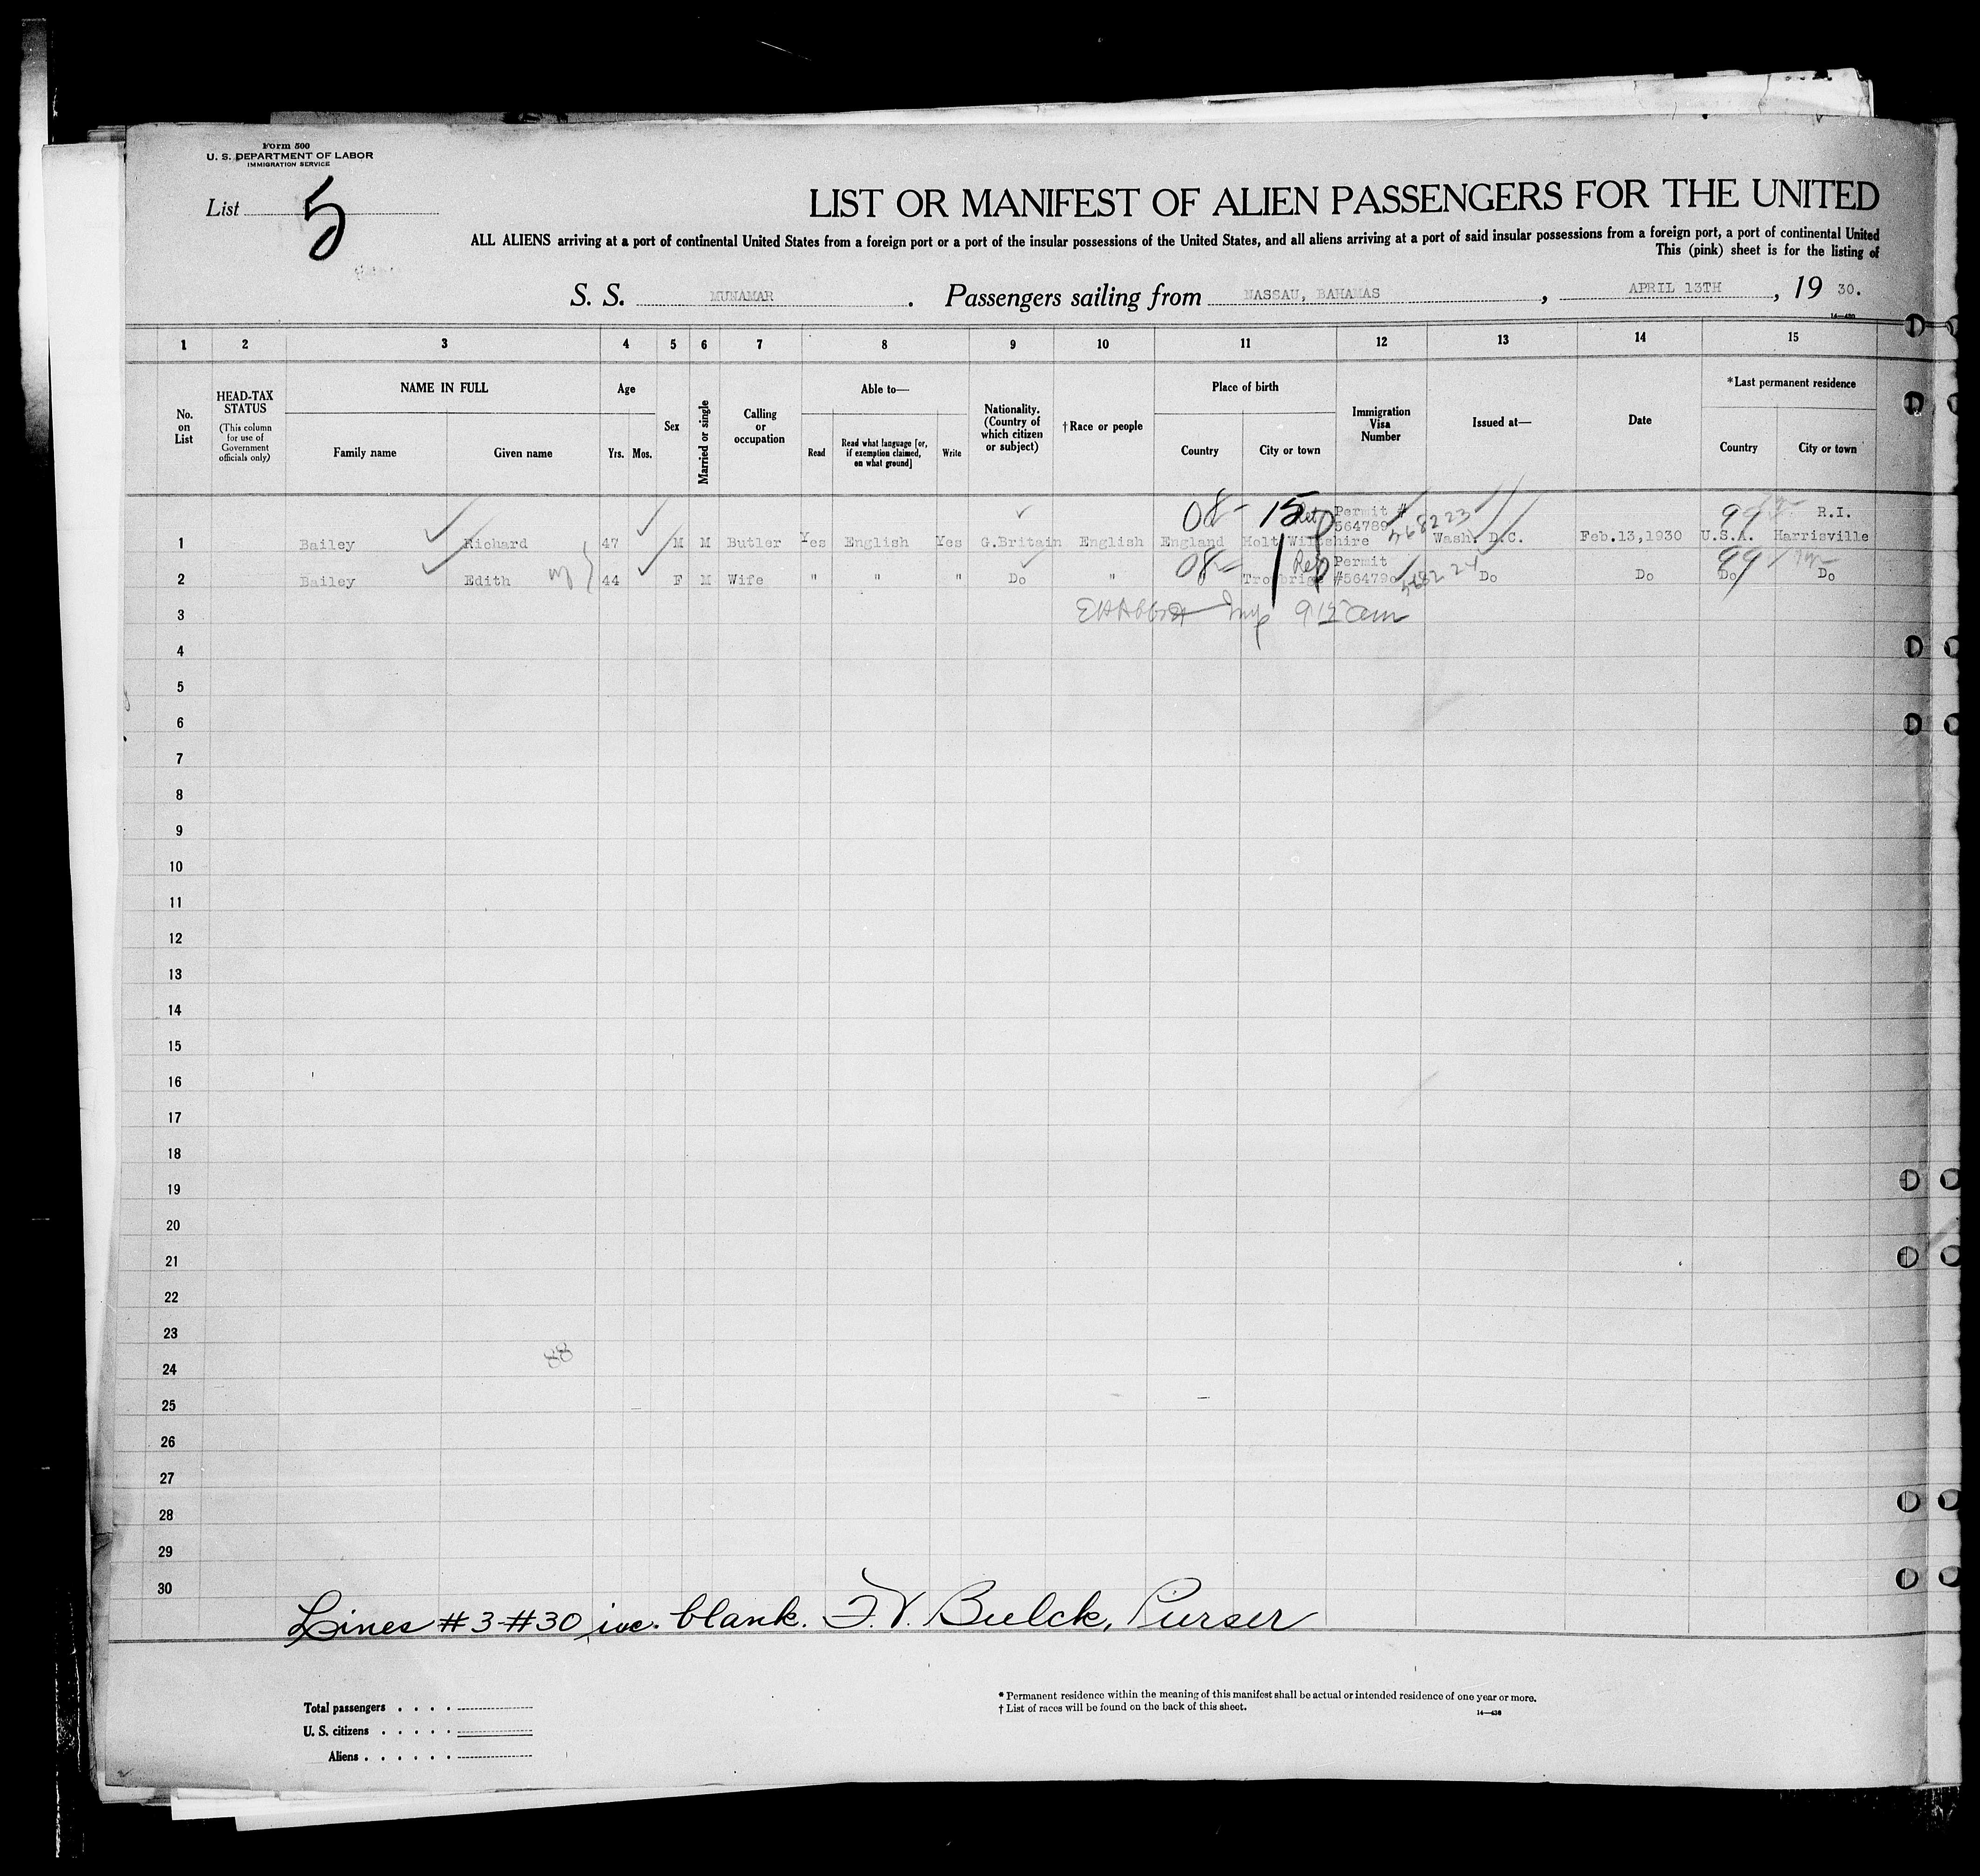 Form 500
U. S. DEPARTMENT OF LABOR
IMMIGRATION SERVICE
List 5
LIST OR MANIFEST OF ALIEN PASSENGERS FOR THE UNITED
ALL ALIENS arriving at a port of continental United States from a foreign port or a port of the insular possessions of the United States, and all aliens arriving at a port of said insular possessions from a foreign port, a port of continental United
This (pink) sheet is for the listing of
S. S. MUNAMAR. Passengers sailing from NASSAU, BAHAMAS, APRIL 13TH, 19 30.
14—430
1 2 3 4 5 6 7 8 9 10 11 12 13 14 15
No. on List
HEAD-TAX STATUS
(This column for use of Government officials only)
NAME IN FULL
Family name Given name
Age
Yrs. Mos.
Sex
Married or single
Calling or occupation
Able to—
Read
Read what language [or, if exemption claimed, on what ground]
Write
Nationality. (Country of which citizen or subject)
†Race or people
Place of birth
Country City or town
Immigration Visa Number
Issued at—
Date
*Last permanent residence
Country City or town
08- 15 Permit # 99 R.I.
564789 468223
1 Bailey Richard 47 M M Butler Yes English Yes G.Britain English England Holt Wiltshire Wash. D.C. Feb.13,1930 U.S.A. Harrisville
08- Permit 99
2 Bailey Edith 44 F M Wife " " " Do " Trowbrige #564790 468224 Do Do Do Do
3 9 15 am
4
5
6
7
8
9
10
11
12
13
14
15
16
17
18
19
20
21
22
23
24 88
25
26
27
28
29
30
Lines #3-#30 inc. blank. F.V. Bulck, Purser
Total passengers
U. S. citizens
Aliens
* Permanent residence within the meaning of this manifest shall be actual or intended residence of one year or more.
† List of races will be found on the back of this sheet.
14—430